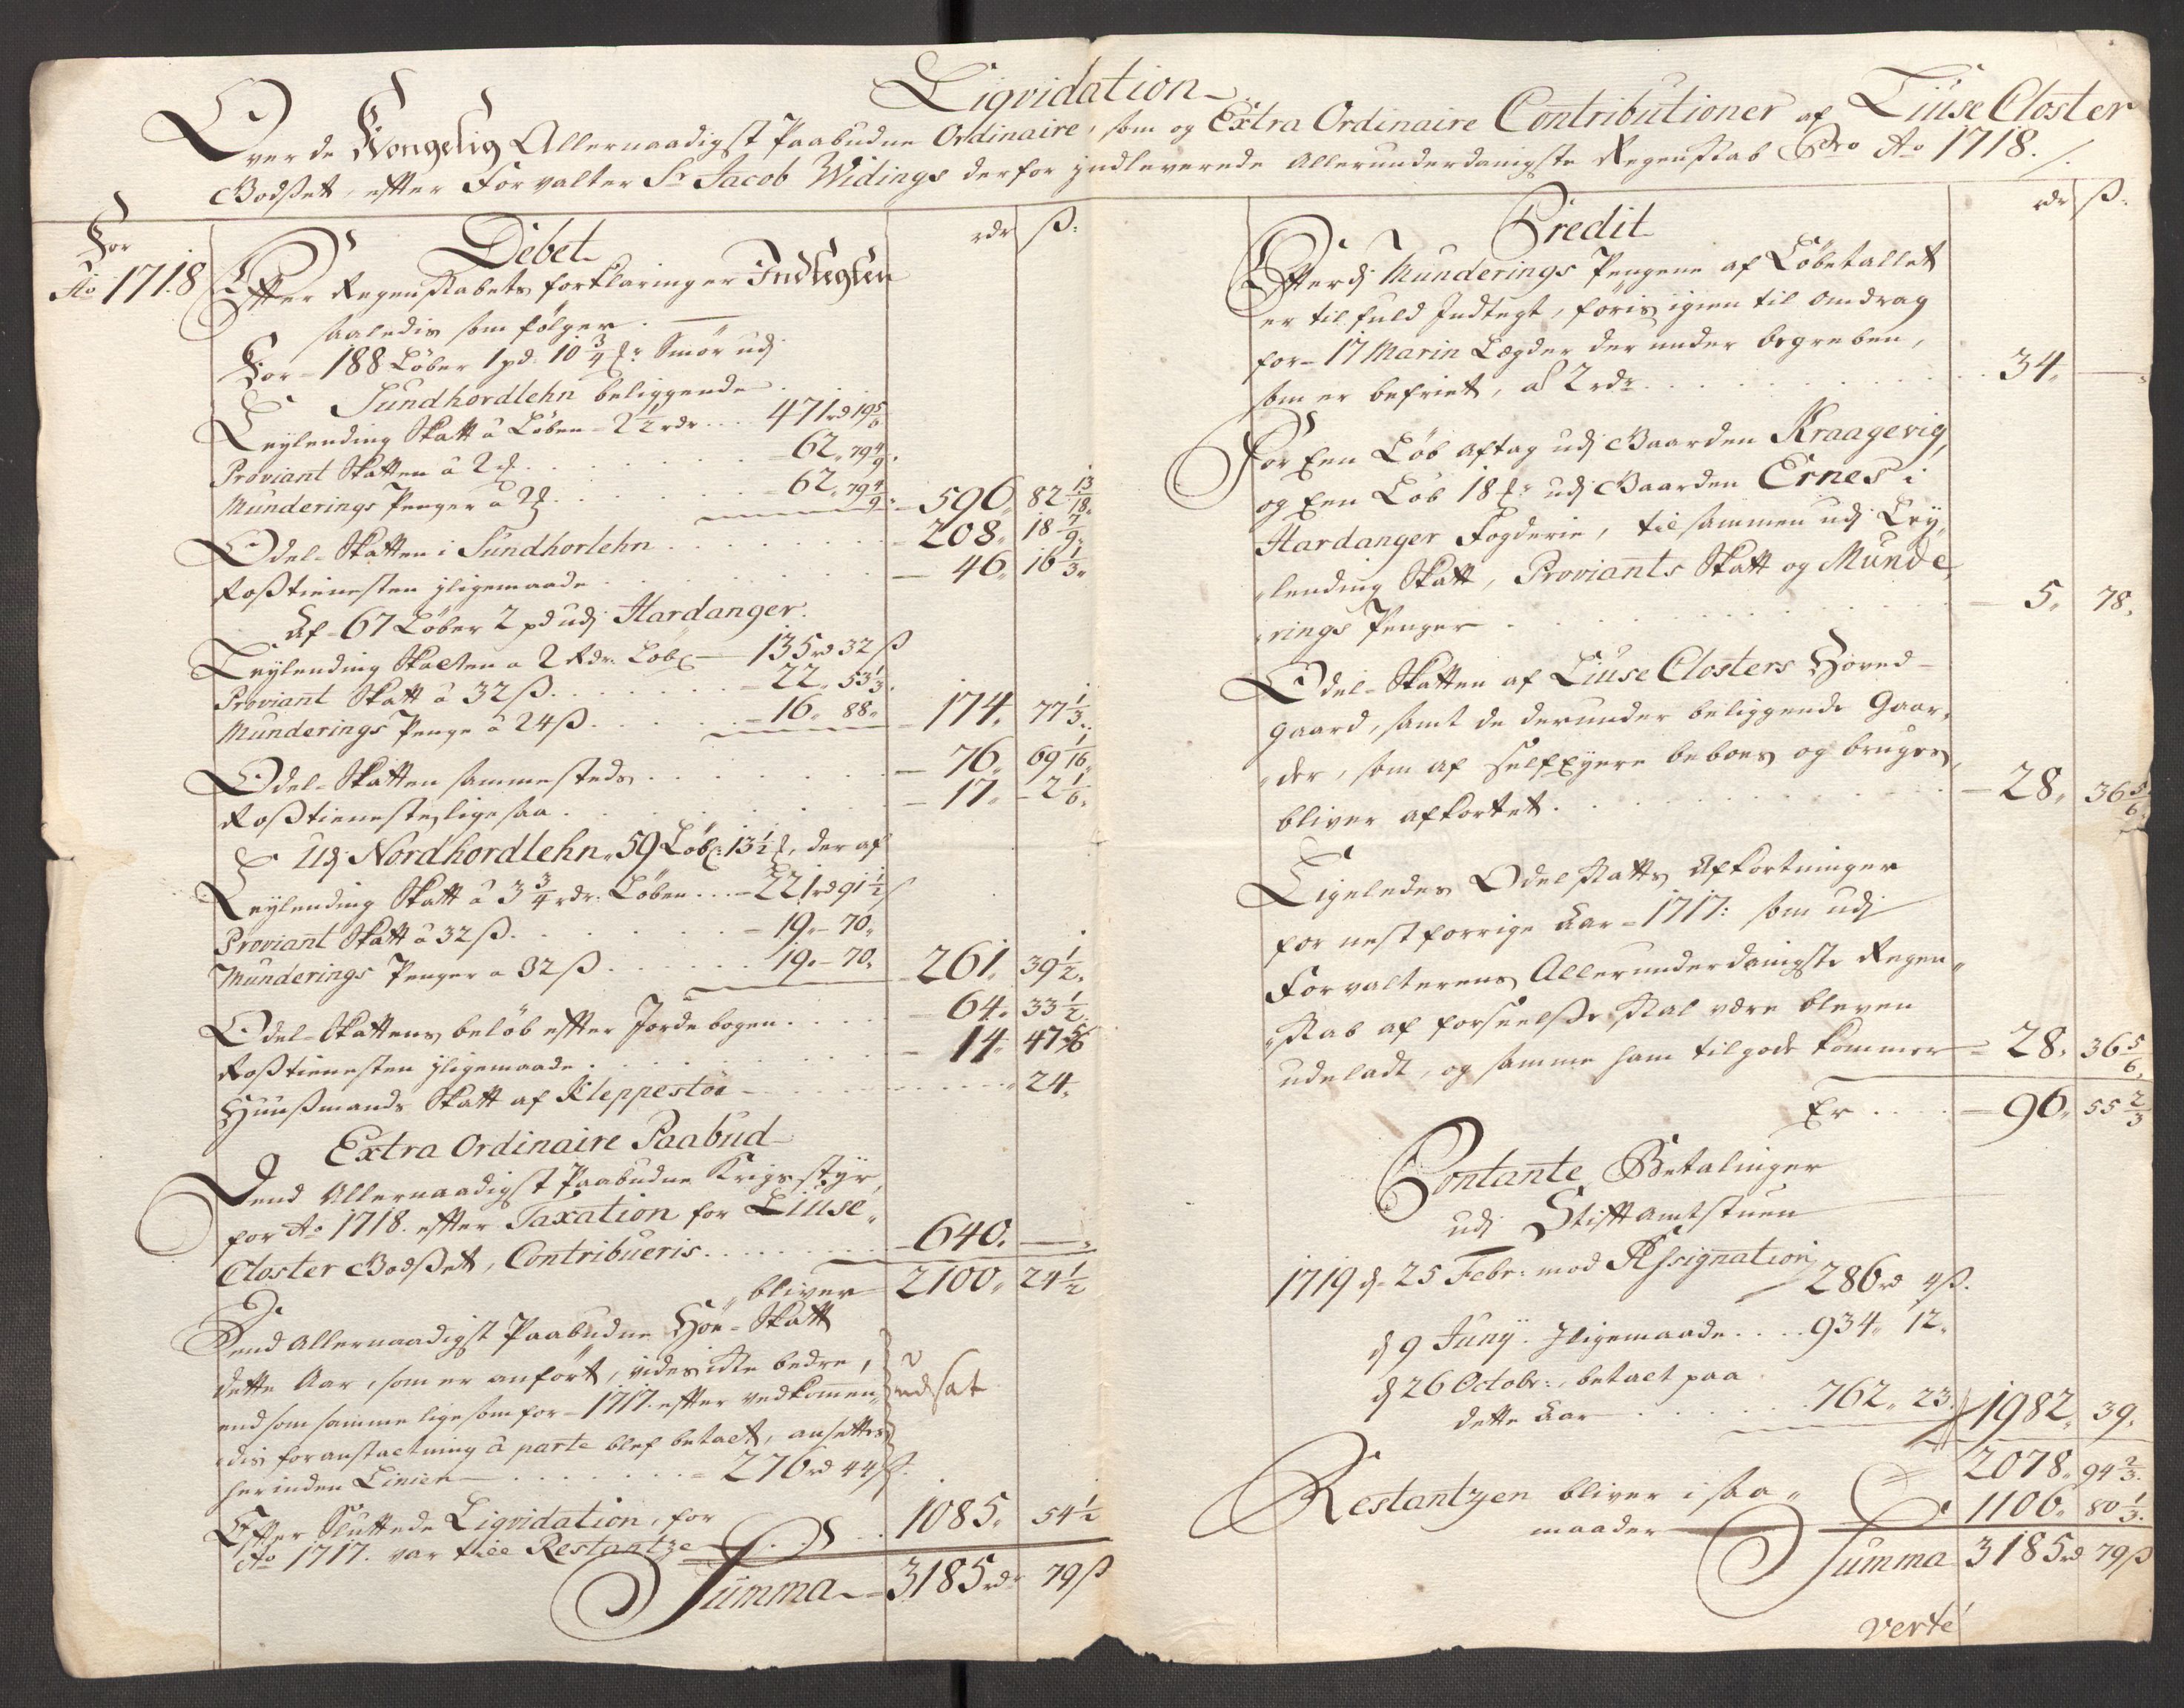 Liqvidation
Over de Kongelig Allernaadigst Paabudne Ordinaire, som og Extra Ordinaire Contributioner af Liuse Closter
Godset, effter Forvalter Sr Jacob Widings derfor jndleverede Allerunderdanigste Regenskab Pro Ao 1718./.
For
Ao 1718
Debet
rdr ß:
Effter Regenskabets forklaringer Indtegten
saaledis som følger.
For 188 Løber 1 pd: 10 3/4 Smør udj
Sundhordlehn beliggende
Leylending Skatt â Løben 2 1/2 rdr... 471 rd 19 5/6
Proviant Skatten â 2 . . . 62„ 79 4/9
Munderings Penger â 2 . . . 62„ 79 4/9 596„ 82 13/18„
Odel-Skatten i Sundhorlehn . . . 208„ 18 7/9„
Rosstienesten jligemaade . . . 46„ 16 1/3„
Af 67 Løber 2 pd udj Hardanger.
Leylending Skatten a 2 Rdr. Løb 135 rd 32 ß
Proviant Skatt â 32 ß. . . . 22„ 53 1/3.
Munderings Penge â 24 ß. . . . 16„ 88„ 174„ 77 1/3„
Odel-Skatten sammesteds . . . 76„ 69 1/16„
Rosstieneste ligesaa . . . 17„ 2 1/6„
Udj Nordhordlehn„ 59 Løb: 13 1/2 , der af
Leylending Skatt â 3 3/4 rdr. Løben... 221 rd 91 1/2 ß
Proviant Skatt â 32 ß. . . . 19„ 70„
Munderings Penger a 32 ß . . . 19„ 70„ 261„ 39 1/2„
Odel-Skattens beløb effter Jordebogen . . . 64„ 33 1/2
Rosstienesten jligemaade . . . 14„ 47 5/6
Huusmands Skatt af Kleppestøe . . . 24„
Extra Ordinaire Paabud
Dend Allernaadigst Paabudne Krigsstyr,
for Ao 1718. effter Taxation for Liuse„
Closter Godset, Contribueris . . . 640. —
bliver 2100„ 24 1/2
Dend allernaadigst Paabudne Høe-Skatt
dette Aar, som er anført, vides icke bedre,
end som samme ligesom for 1717. effter vedkommen„ udsat
„dis foranstaltning â parte blef betaelt, ansettes
her inden Linien . . . 276 rd 44 ß.
Effter Sluttede Liqvidation, for
Ao 1717. var tiee Restantze . . . 1085„ 54 1/2
Summa 3185 rdr 79 ß
Credit
rdr ß:
Efterdj Munderings Pengene af Løbetallet
er til fuld Indtegt, føris igien til omdrag
for 17 Marin Lægder der under begreben,
som er befriet, â 2 rdr . . . 34„ —
For Een Løb aftag udj Gaarden Kraagevig,
og Een Løb 18 udj Gaarden Ernes i
Hardanger Fogderie, tilsammen udj Ley„
„lending Skatt, Proviants Skatt og Munde„
„rings Penger . . . 5„ 78„
Odel-Skatten af Liuse Closters Hoved-
gaard, samt de derunder beliggende Gaar„
„der, som af selfeyere beboes og bruges,
bliver afkortet . . . 28„ 36 5/6„
Ligeledes Odelskatts Afkortninger
for nestforrige Aar 1717: som udj
Forvalterens Allerunderdanigste Regen„
„skab af forseelse skal være bleven
udeladt, og samme ham tilgode kommer 28„ 36 5/6„
Er . . . 96„ 55 2/3
Contante Betalinger
udj Stifftamtstuen
1719 d. 25 Febr: mod Assignation 286 rd 4 ß.
d 9 Junij. Jligemaade . . . 934„ 12„
d 26 Octobr:, betaet paa
dette Aar . . . 762„ 23„ 1982„ 39„
2078„ 94 2/3„
Restantzen bliver i saa„ 1106„ 80 1/3„
maader
Summa 3185 rd 79 ß
Verte